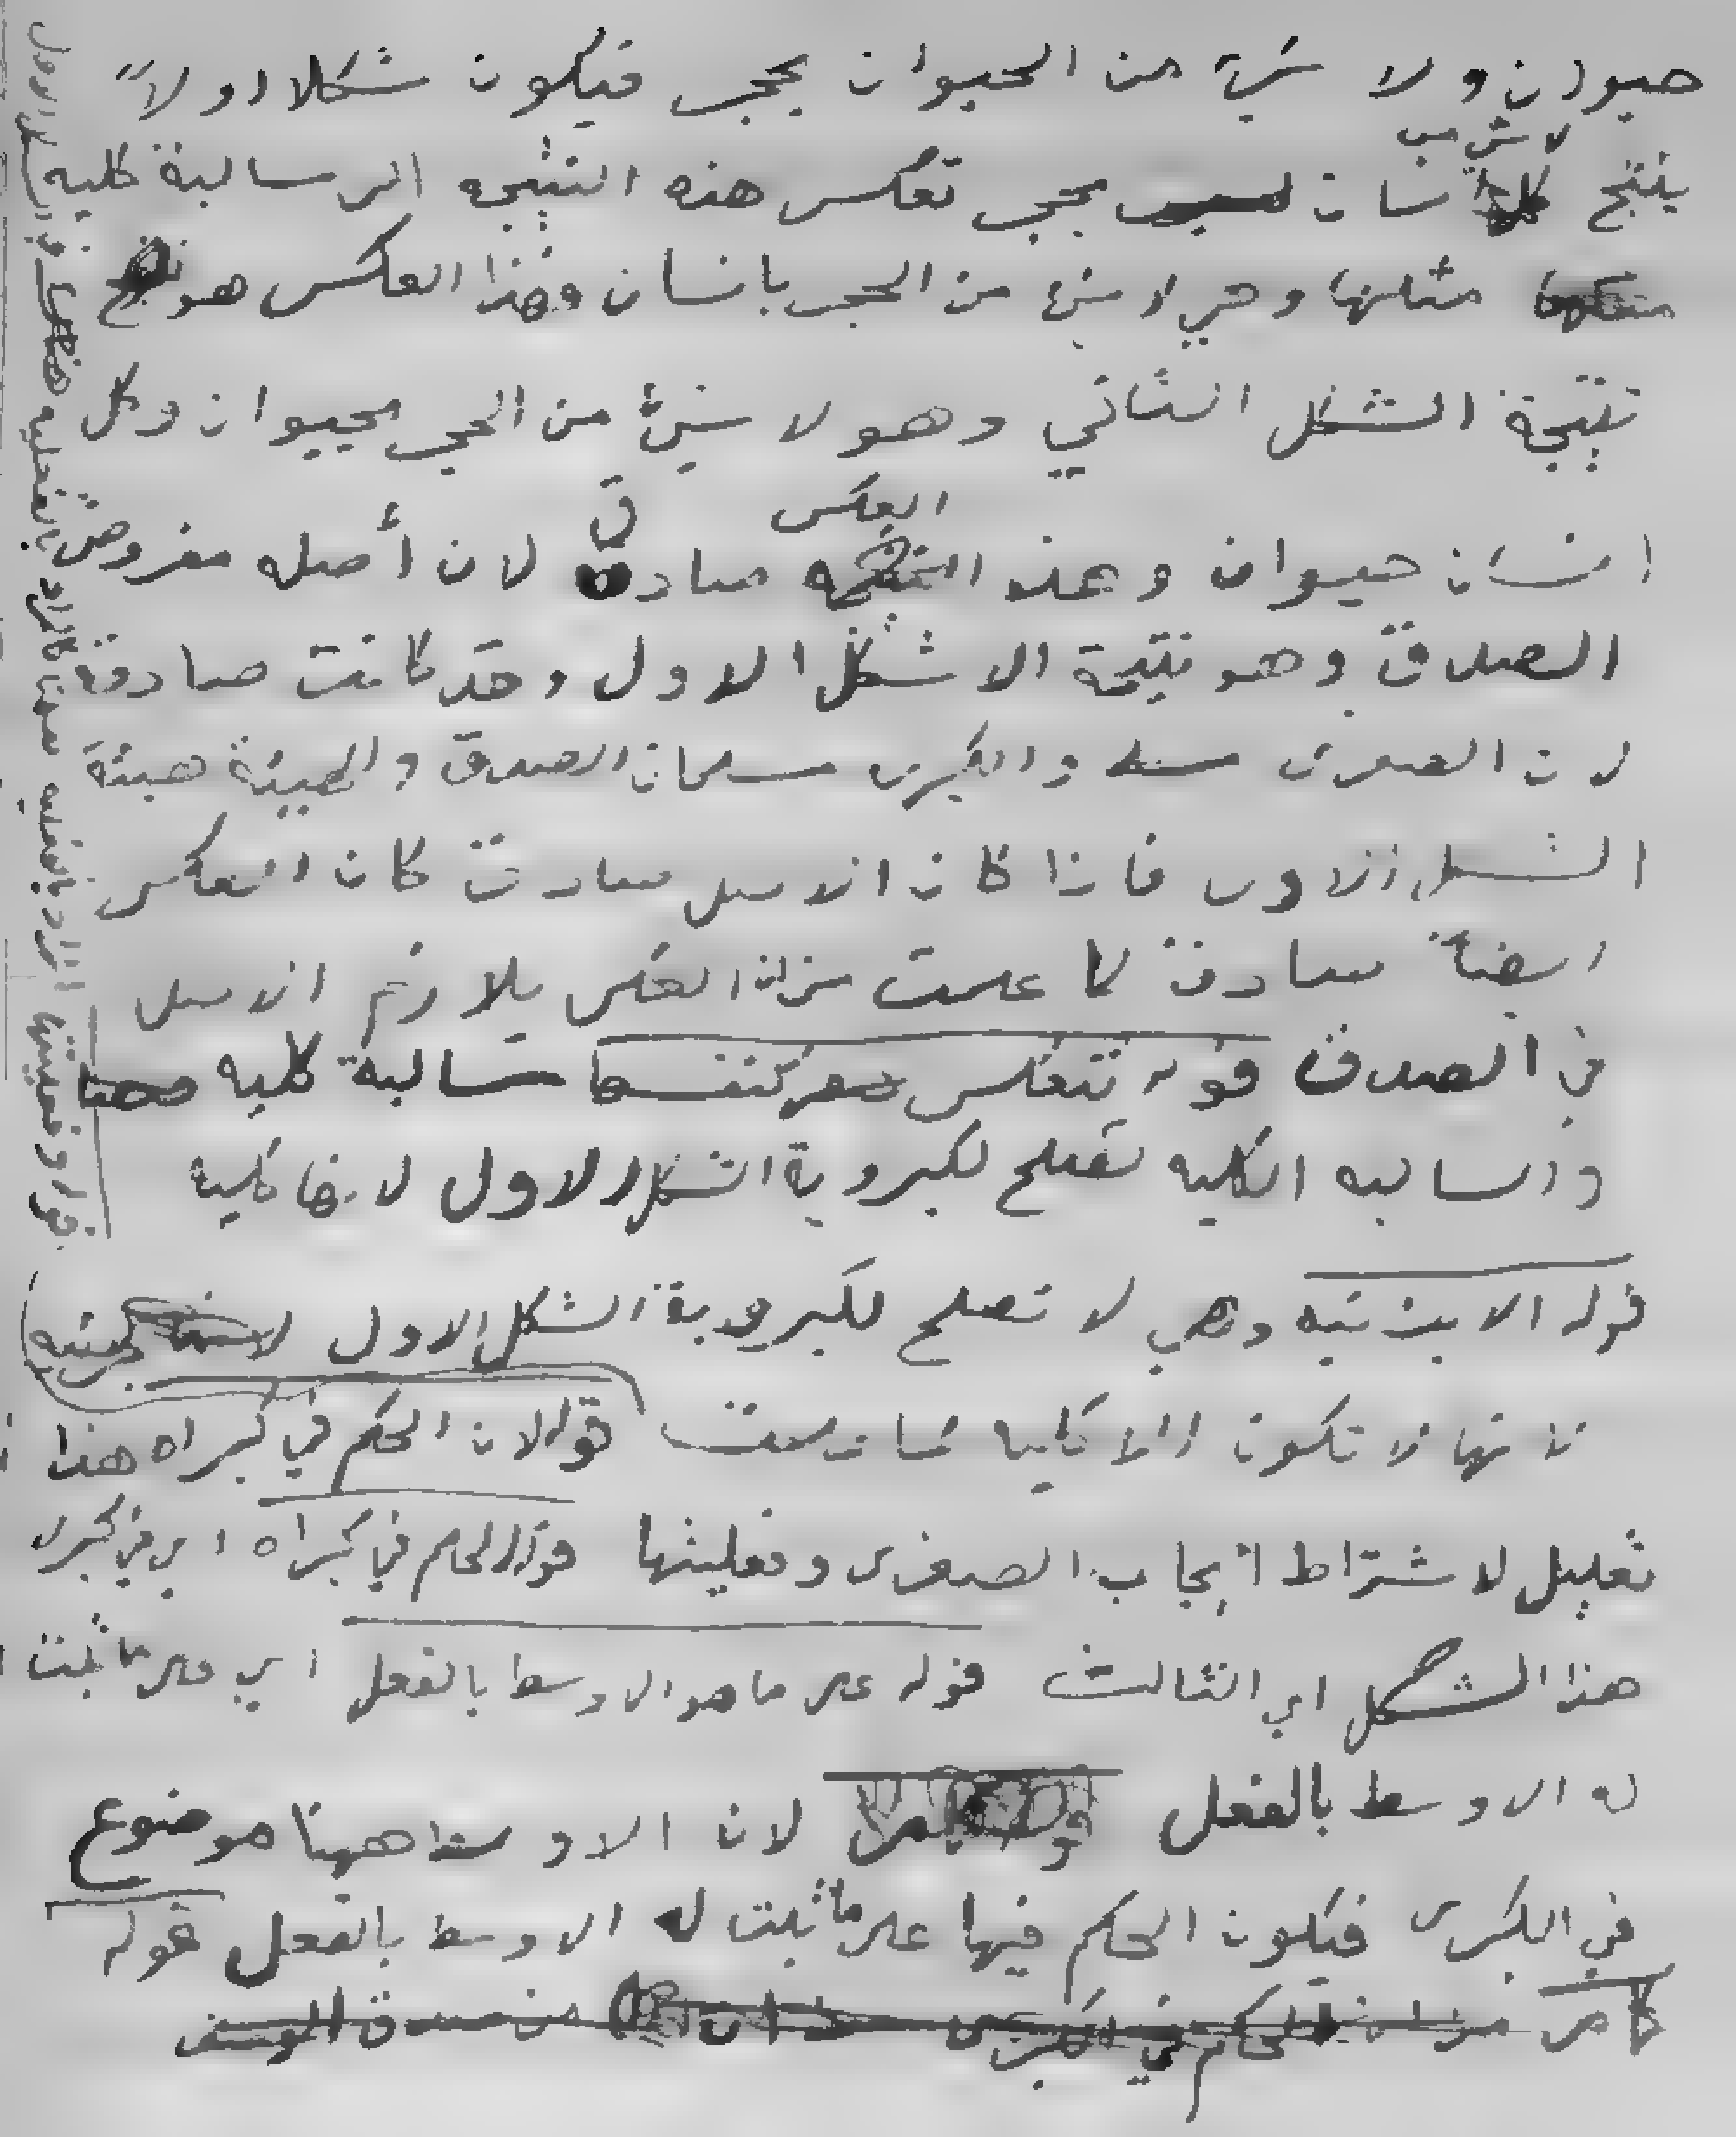 حيوان ولا شيئ من الحيوان بحجر فيكون شكلا اولاً
ينتج لا شئ من انسان بحجر تعكس هذه النتيجه الى سالبة كلية
مثلها وهي لا شئ من الحجر بانسان وهذا العكس هو
نتيجة الشكل الثاني وهو لا شئ من الحجر بحيوان وكل
انسان حيوان وهذا العكس صادق لان أصله مفروض
الصدق وهو نتيجة الاشكل الاول وقد كانت صادقة
لان الصغرى والكبرى مسلمان الصدق والهيئة هيئة
الشكل الاول فاذا كان الاصل صادق كان العكس
ايضاً صادق لما علمت من ان العكس يلازم الاصل
في الصدق قوله تنعكس كنفسها سالبة كليه
والسالبه الكليه تصلح لكبروية الشكل الاول لانها كلية
قوله الا جزئيه وهي لا تصلح لكبروية الشكل الاول
لانها لا تكون الا كلية كما عرفت قوله لان الحكم في كبراه هذا
تعليل لاشتراط ايجاب الصغرى وفعليتها قوله الحكم في كبراه اي في كبرى
هذا الشكل اي الثالث قوله على ما هو الاوسط بالفعل اي على ما ثبت
له الاوسط بالفعل لان الاوسط ههنا موضوع
في الكبرى فيكون الحكم فيها على ما ثبت له الاوسط بالفعل قوله
كما مر من ان الحكم في الكبرى
قوله وفعليتها المراد بالفعليه